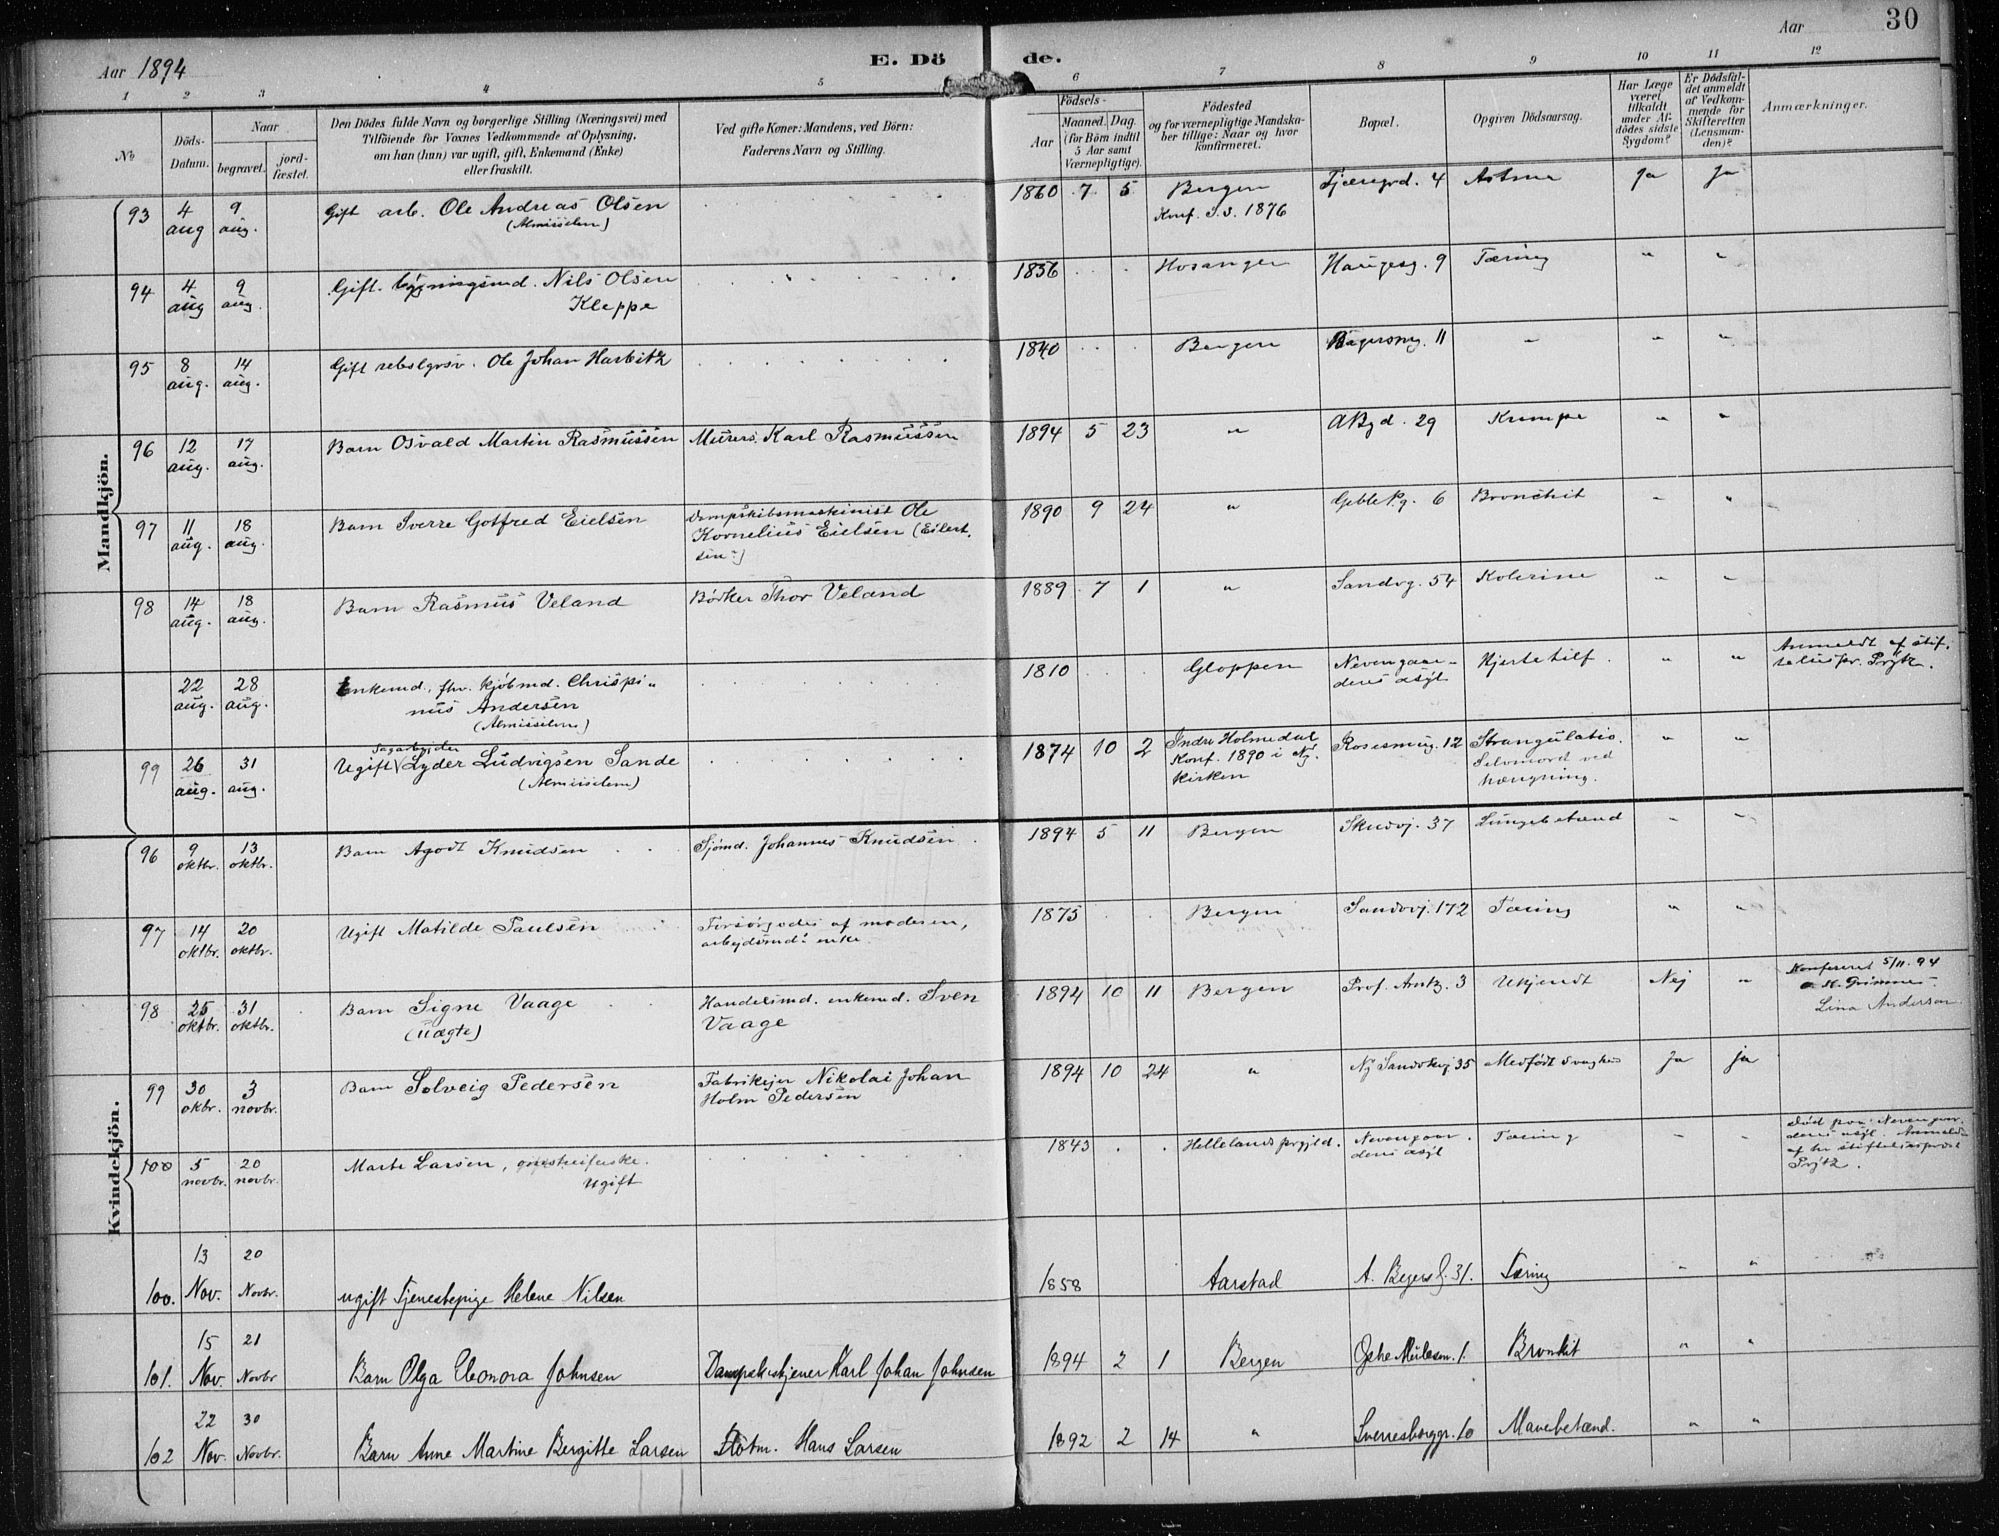 Aar 1894
E. Dö
de.
Aar
30
1 2 3 4 5 6 7 8 9 10 11 12
No
Döds-Datum.
Naar
begravet.
jord-fæstet.
Den Dödes fulde Navn og borgerlige Stilling (Næringsvei) med
Tilföiende for Voxnes Vedkommende af Oplysning,
om han (hun) var ugift, gift, Enkemand (Enke)
eller fraskilt.
Ved gifte Koner: Mandens, ved Börn:
Faderens Navn og Stilling.
Födsels-
Aar
Maaned. Dag.
(for Börn indtil
5 Aar samt
Værnepligtige).
Födested
og for værnepligtige Mandska-
ber tillige: Naar og hvor
konfirmeret.
Bopæl.
Opgiven Dödsaarsag.
Har Læge
været
tilkaldt
under Af-
dödes sidste
Sygdom?
Er Dödsfal-
det anmeldt
af Vedkom-
mende for
Skifteretten
(Lensman-
den)?
Anmærkninger.
Mandkjön.
93 4 aug 9 aug. Gift arb. Ole Andreas Olsen 1860 7 5 Bergen Tjæregrd. 4 Astma Ja Ja
(Almisselem) Konf. 1876
94 4 aug 9 aug. Gift. bygningsmd. Nils Olsen 1856 Hosanger Haugeg. 9 Tæring " "
Kleppe
95 8 aug. 14 aug. Gift rebslgrsv. Ole Johan Harbitz 1840 Bergen 11 " " "
96 12 aug. 17 aug. Barn Osvald Martin Rasmussen Murers. Karl Rasmussen 1894 5 23 " 29 Krampe " "
97 11 aug. 18 aug. Barn Sverre Gotfred Eielsen Dampskibsmaskinist Ole 1890 9 24 " 6 Bronchit " "
Kornelius Eielsen (Eilert-
sen?)
98 14 aug. 18 aug. Barn Rasmus Veland Bödker Thor Veland 1889 7 1 " Sandvg. 54 Kolerine " "
22 aug. 28 aug. Enkemd. fhv. kjöbmd. Chrispi- 1810 Gloppen Nevengaar- Hjertetilf. " " Anmeldt af stif-
nus Andersen denes asyl telsespr. Prytz.
(Almisselem)
99 26 aug. 31 aug. Ugift Sagarbeider Lyder Ludvigsen Sande 1874 10 2 Indre Holmedal Rosesmug. 12 Strangulatio. " "
(Almisselem) Konf. 1890 i Ny- Selvmord ved
kirken hængning.
Kvindekjön.
96 9 oktbr. 13 oktbr. Barn Agodt Knudsen Sjömd. Johannes Knudsen 1894 5 11 Bergen Skudvj. 37 Lungebetænd " "
97 14 oktbr. 20 oktbr. Ugift Matilde Paulsen Forsörgedes af moderen, 1875 Bergen Sandvvj. 172 Tæring " "
arbejdsmds enke
98 25 oktbr. 31 oktbr. Barn Signe Vaage Handelsmd. enkemd. Sven 1894 10 11 Bergen Prof. Antz. 3 Ukjendt Nej " Konfereret 5/11. 94
(uægte) Vaage Grimnes
Lina Anderson
99 30 okbr. 3 novbr. Barn Solveig Pedersen Fabrikejer Nikolai Johan 1894 10 24 " Ny Sandvkvj 35 Medfödt svaghed Ja ja
Holm Pedersen
100 5 novbr. 20 novbr. Marte Larsen, 1843 Hellelands prgjld. Nevengaar- Tæring " " Död paa Nevengaar-
Ugift denes asyl denes asyl. Anmeldt
af hr stiftelsesprest
Prytz.
100. 13 Nov. 20 Novbr. ugift Tjenestepige Helene Nilsen 1858 Aarstad 31. Tæring " "
101. 15 Nov. 21 Novbr Barn Olga Eleonora Johnsen Dampsk.stjener Karl Johan Johnsen 1894 2 1 Bergen 1. Bronkit " "
102 22 Nov. 30 Novbr. Barn Anne Martine Bergitte Larsen Hans Larsen 1892 2 14 " Sverresborggt. 10 Mavebetænd. " "